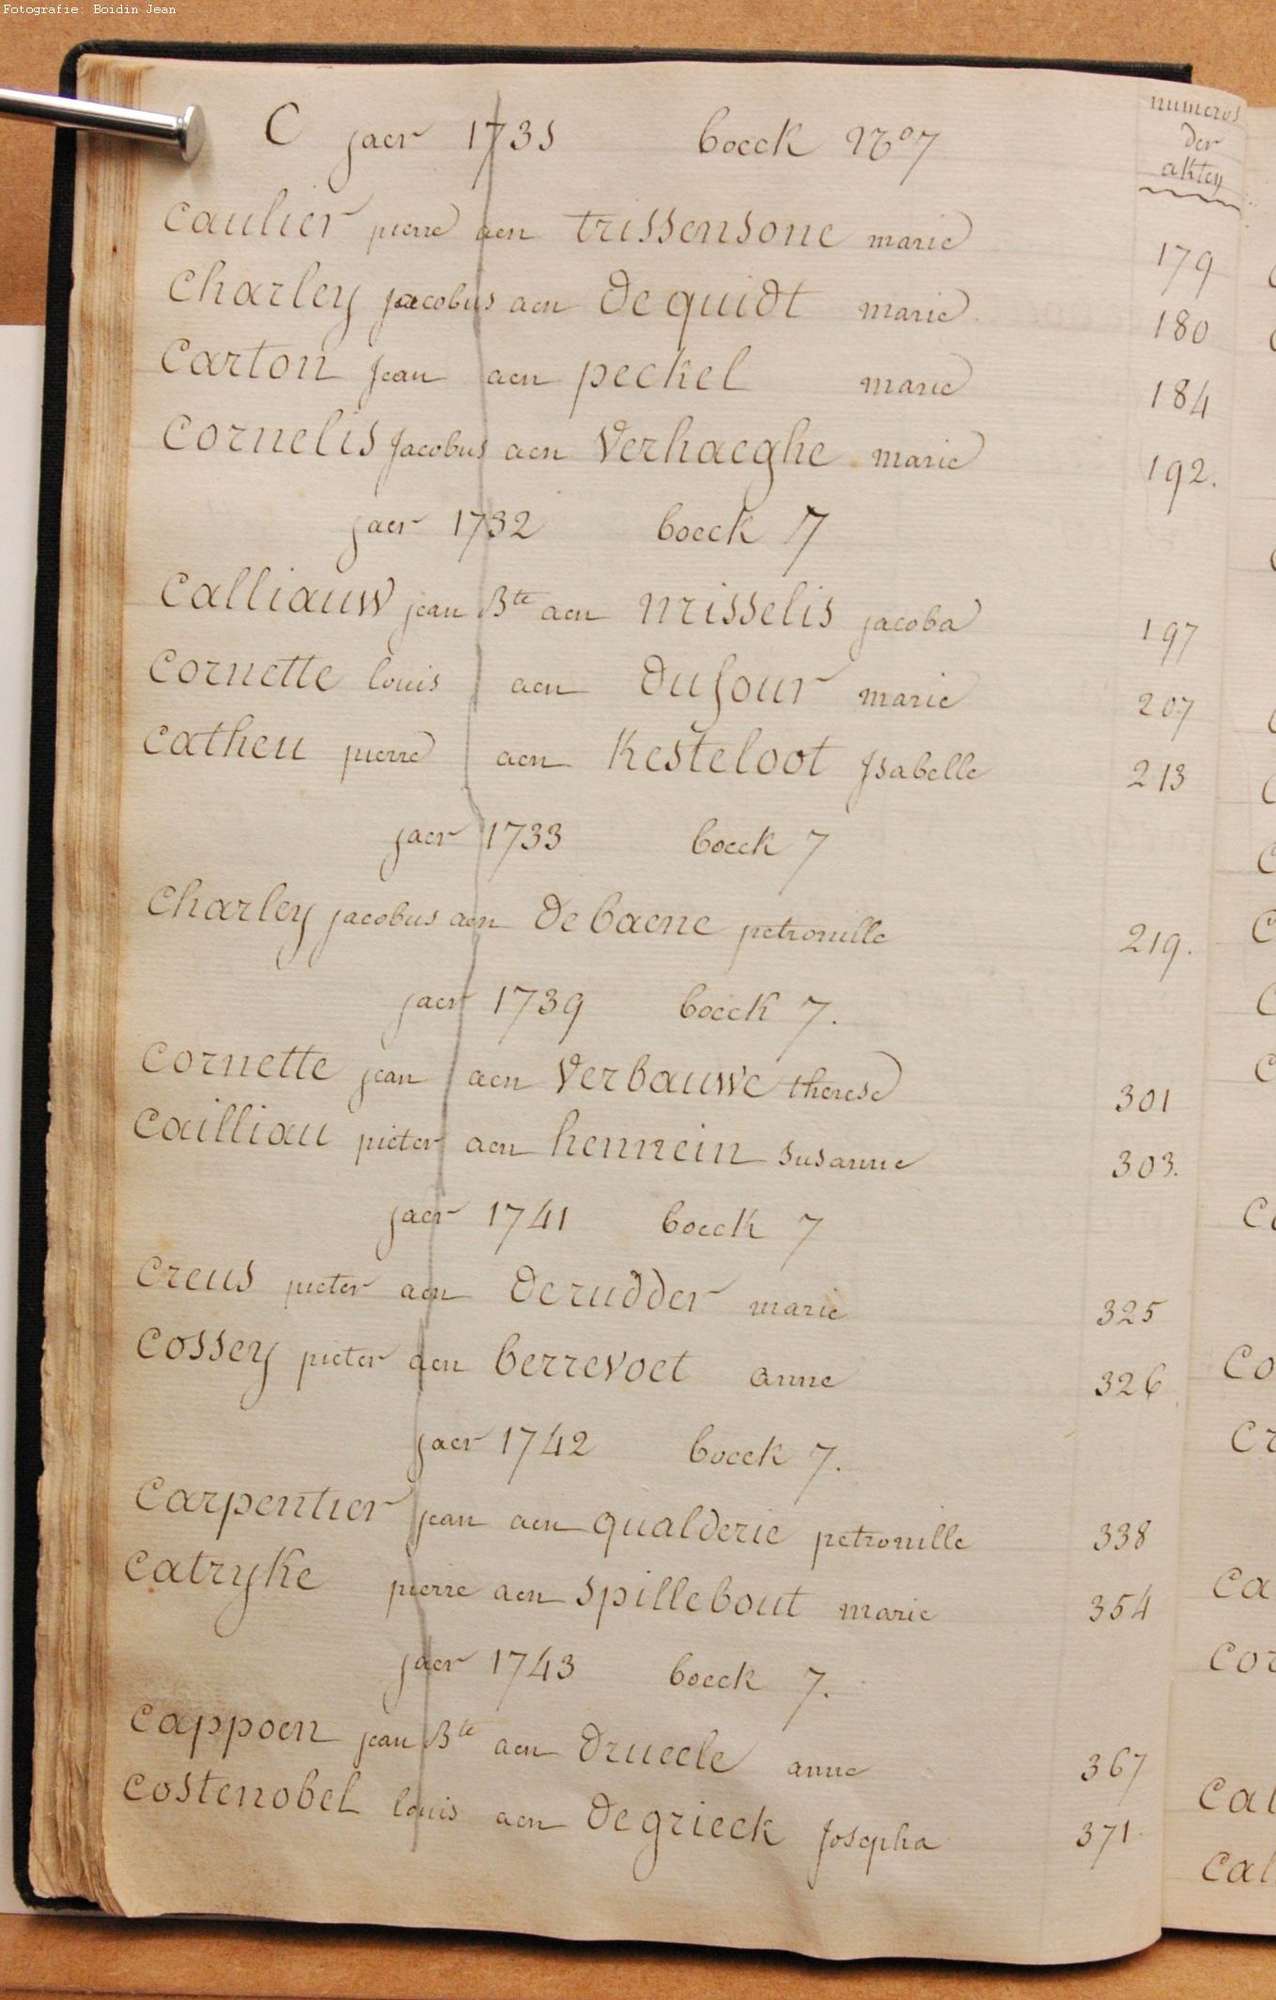 Fotografie: Boidin Jean
numeros
der
akten
C jaer 1731 boeck No 7
caulier pierre aen trissensone marie 179
charley jacobus aen de quidt marie 180
carton jean aen peckel marie 184
cornelis jacobus aen verhaeghe marie 192.
jaer 1732 boeck 7
calliauw jean Bte aen misselis jacoba 197
cornette louis aen dufour marie 207
catheu pierre aen Kesteloot Isabelle 213
jaer 1733 boeck 7
charley jacobus aen de baene petronille 219.
jaer 1739 boeck 7.
cornette jean aen verbauwe therese 301
cailliau pieter aen hennein susanne 303.
jaer 1741 boeck 7
creus pieter aen derudder marie 325
cossey pieter aen berrevoet anne 326
jaer 1742 boeck 7.
carpentier jean aen qualderie petronille 338
catryke pierre aen spillebout marie 354
jaer 1743 boeck 7.
cappoen jean Bte aen drueele anne 367
costenobel louis aen de grieck Josepha 371